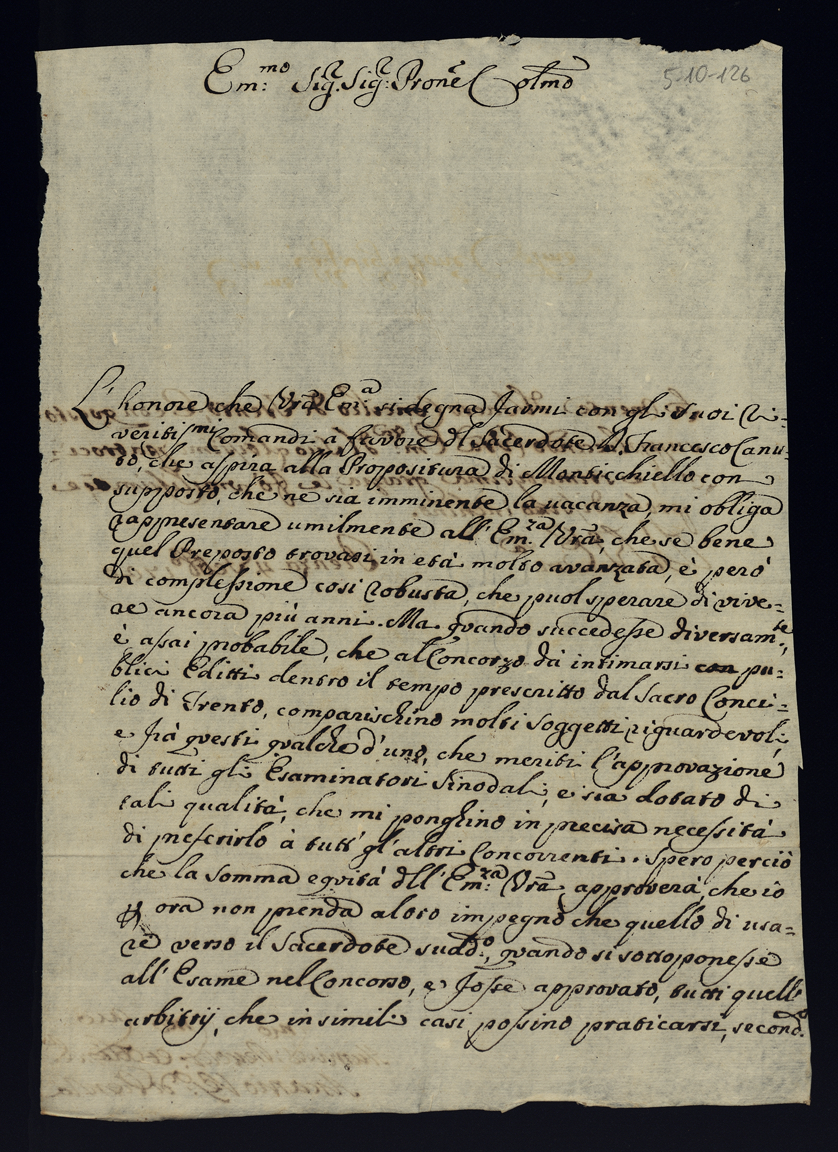 Em:mo Sig.r Sig:r Prone Colmo
5-10-126
L'honore che Vrã Em.a si degna farmi con gli suoi ri=
veritis.mi Comandi à favore dl Sacerdote D. Francesco Canu=
to, che aspira alla Propositura di Monticchiello con
supposto, che ne sia imminente la vacanza, mi obliga
rappresentare umilmente all' Em.za Vrã, che se bene
quel Preposto trovasi in età molto avanzata, è però
di complessione così robusta, che puol sperare di vive=
re ancora più anni. Ma quando succedesse diversam.te,
è assai probabile, che al Concorzo da intimarsi con pu=
blici Editti dentro il tempo prescritto dal Sacro Conci=
lio di Trento, comparischino molti soggetti riguardevoli
e frà questi qualche d'uno, che meriti l'approvazione
di tutti gli Esaminatori Sinodali, e sia dotato di
tali qualità, che mi ponghino in precisa necessità
di preferirlo à tutt' gl'altri Concorrenti. Spero perciò
che la somma equità dll' Em:za Vrã approverà, che io
p ora non prenda altro impegno che quello di usa=
re verso il Sacerdote sud.do, quando si sottoponesse
all' Esame nel Concorso, e fosse approvato, tutti quelli
arbitrij, che in simili casi possino praticarsi, second.o